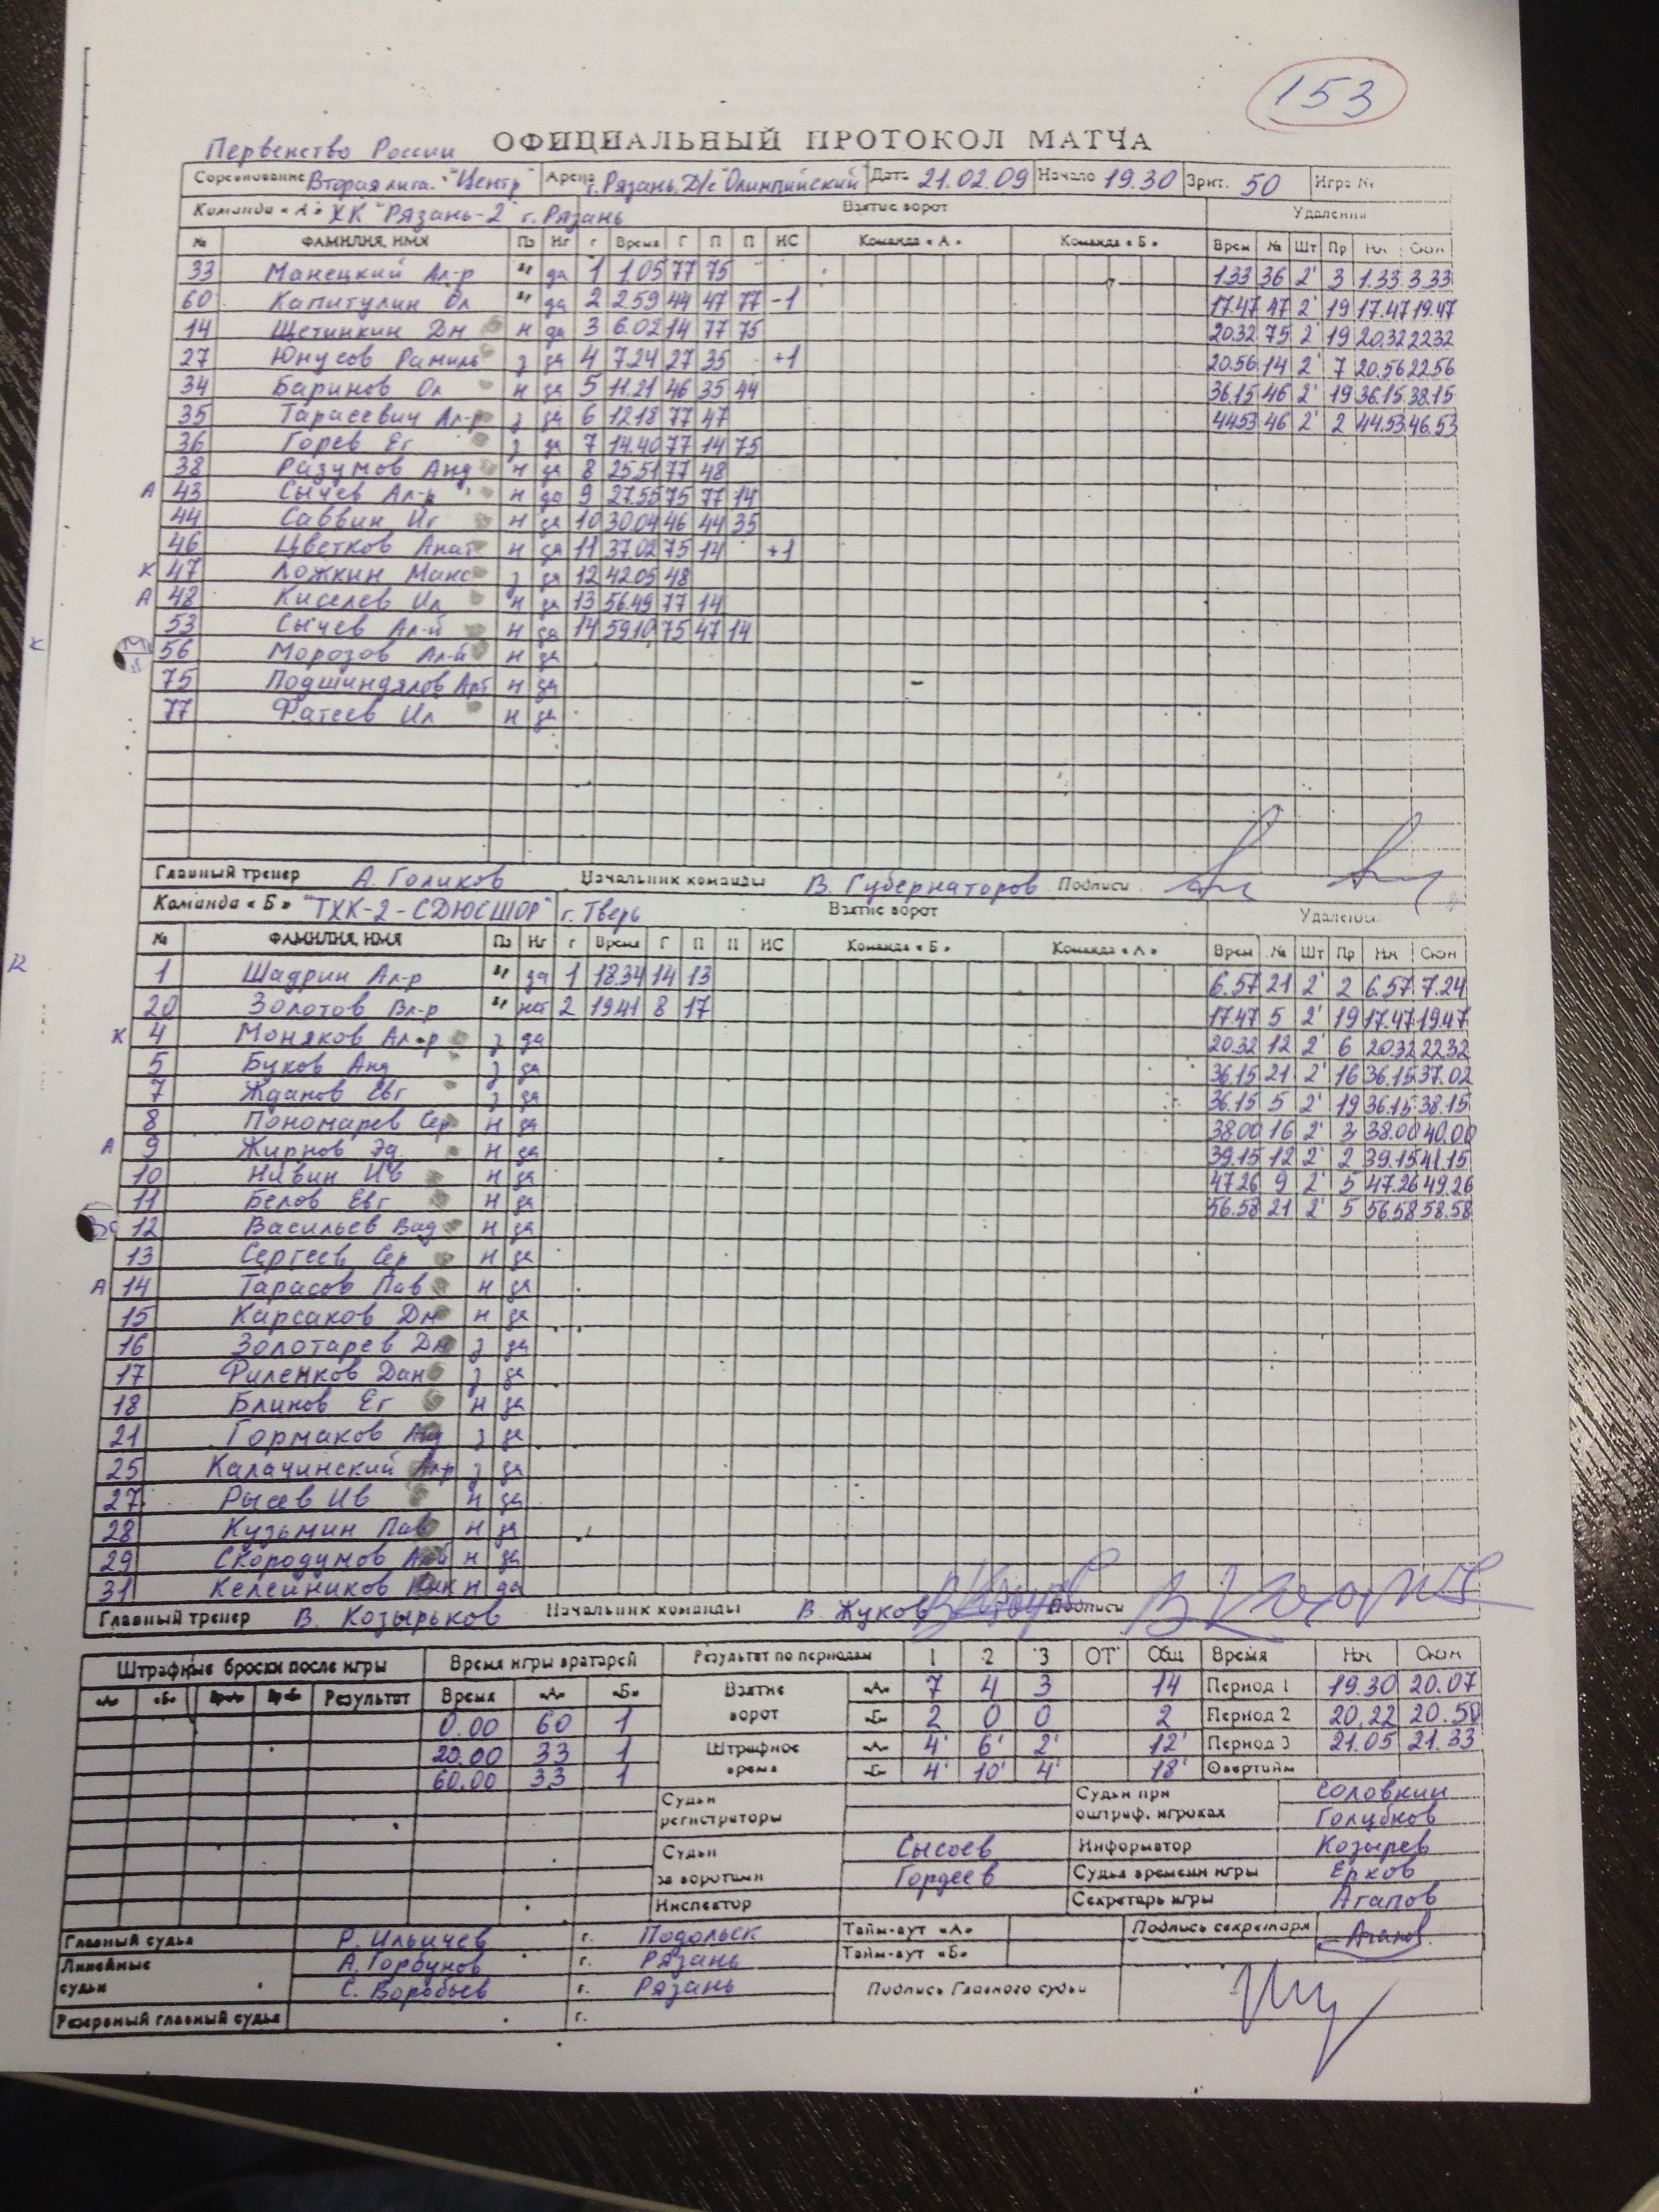 153
Первенство России ОФИЦИАЛЬНЫЙ ПРОТОКОЛ МАТЧА
Соревнование Вторая лига. "Центр" Арена г. Рязань, Д/с "Олимпийский" Дата 21.02.09 Начало 19.30 Зрит. 50 Игра №
Команда «А» ХК "Рязань-2" г. Рязань Взятие ворот Удаления
№ ФАМИЛИЯ, ИМЯ Пз Нг г Время Г П П ИС Команда «А» Команда «Б» Врем № Шт Пр Нач Окон
33 Манецкий Ал-р " да 1 1.05 77 75 1.33 36 2' 3 1.33 3.33
60 Капитулин Ол " да 2 2.59 44 47 77 -1 17.47 47 2' 19 17.47 19.47
14 Щетинкин Дм н да 3 6.02 14 77 75 20.32 75 2' 19 20.32 22.32
27 Юнусов Рамиль з да 4 7.24 27 35 +1 20.56 14 2' 7 20.56 22.56
34 Баринов Ол н да 5 11.21 46 35 44 36.15 46 2' 19 36.15 38.15
35 Тарасевич Ал-р з да 6 12.18 77 47 44.53 46 2' 2 44.53 46.53
36 Горев Ег з да 7 14.40 77 14 75
38 Разумов Анд н да 8 25.51 77 48
А 43 Сычев Ал-р н да 9 27.55 75 77 14
44 Саввин Иг н да 10 30.04 46 44 35
46 Цветков Анат н да 11 37.02 75 14 +1
К 47 Ложкин Макс з да 12 42.05 48
А 48 Киселев Ил н да 13 56.49 77 14
53 Сычев Ал-й н да 14 59.10 75 47 14
56 Морозов Ал-й н да
75 Подшиндялов Арт н да
77 Фатеев Ил н да
Главный тренер А. Голиков Начальник команды В. Губернаторов Подписи
Команда «Б» "ТХК-2-СДЮСШОР" г. Тверь Взятие ворот Удалений
№ ФАМИЛИЯ, ИМЯ Пз Нг г Время Г П П ИС Команда «Б» Команда «А» Врем № Шт Пр Нач Окон
1 Шадрин Ал-р " да 1 18.34 14 13 6.57 21 2' 2 6.57 7.24
20 Золотов Вл-р " нет 2 19.41 8 17 17.47 5 2' 19 17.47 19.47
К 4 Моняков Ал-р з да 20.32 12 2' 6 20.32 22.32
5 Буков Анд з да 36.15 21 2' 16 36.15 37.02
7 Жданов Евг з да 36.15 5 2' 19 36.15 38.15
8 Пономарев Сер н да 38.00 16 2' 3 38.00 40.00
А 9 Жирнов Эд н да 39.15 12 2' 2 39.15 41.15
10 Нивин Ив н да 47.26 9 2' 5 47.26 49.26
11 Белов Евг н да 56.58 21 2' 5 56.58 58.58
12 Васильев Вад н да
13 Сергеев Сер н да
А 14 Тарасов Пав н да
15 Карсаков Дм н да
16 Золотарев Дм з да
17 Филенков Дан з да
18 Блинов Ег н да
21 Гормаков Анд з да
25 Калачинский Ал-р з да
27 Рысев Ив н да
28 Кузьмин Пав н да
29 Скородумов Ал-й н да
31 Келейников Ник н да
Главный тренер В. Козырьков Начальник команды В. Жуков Подписи
Штрафные броски после игры Время игры вратарей Результат по периодам 1 2 3 ОТ Общ Время Нач Окон
«А» «Б» Вр«А» Вр«Б» Результат Время «А» «Б» Взятие ворот «А» 7 4 3 14 Период 1 19.30 20.07
0.00 60 1 «Б» 2 0 0 2 Период 2 20.22 20.50
20.00 33 1 Штрафное время «А» 4' 6' 2' 12' Период 3 21.05 21.33
60.00 33 1 «Б» 4' 10' 4' 18' Овертайм
Судьи регистраторы Судьи при оштраф. игроках Соловкин
Голубков
Судьи за воротами Сысоев Информатор Козырев
Гордеев Судья времени игры Ерков
Инспектор Секретарь игры Агапов
Главный судья Р. Ильичев г. Подольск Тайм-аут «А» Подпись секретаря Агапов
Линейные судьи А. Горбунов г. Рязань Тайм-аут «Б»
С. Воробьев г. Рязань Подпись Главного судьи
Резервный главный судья г.